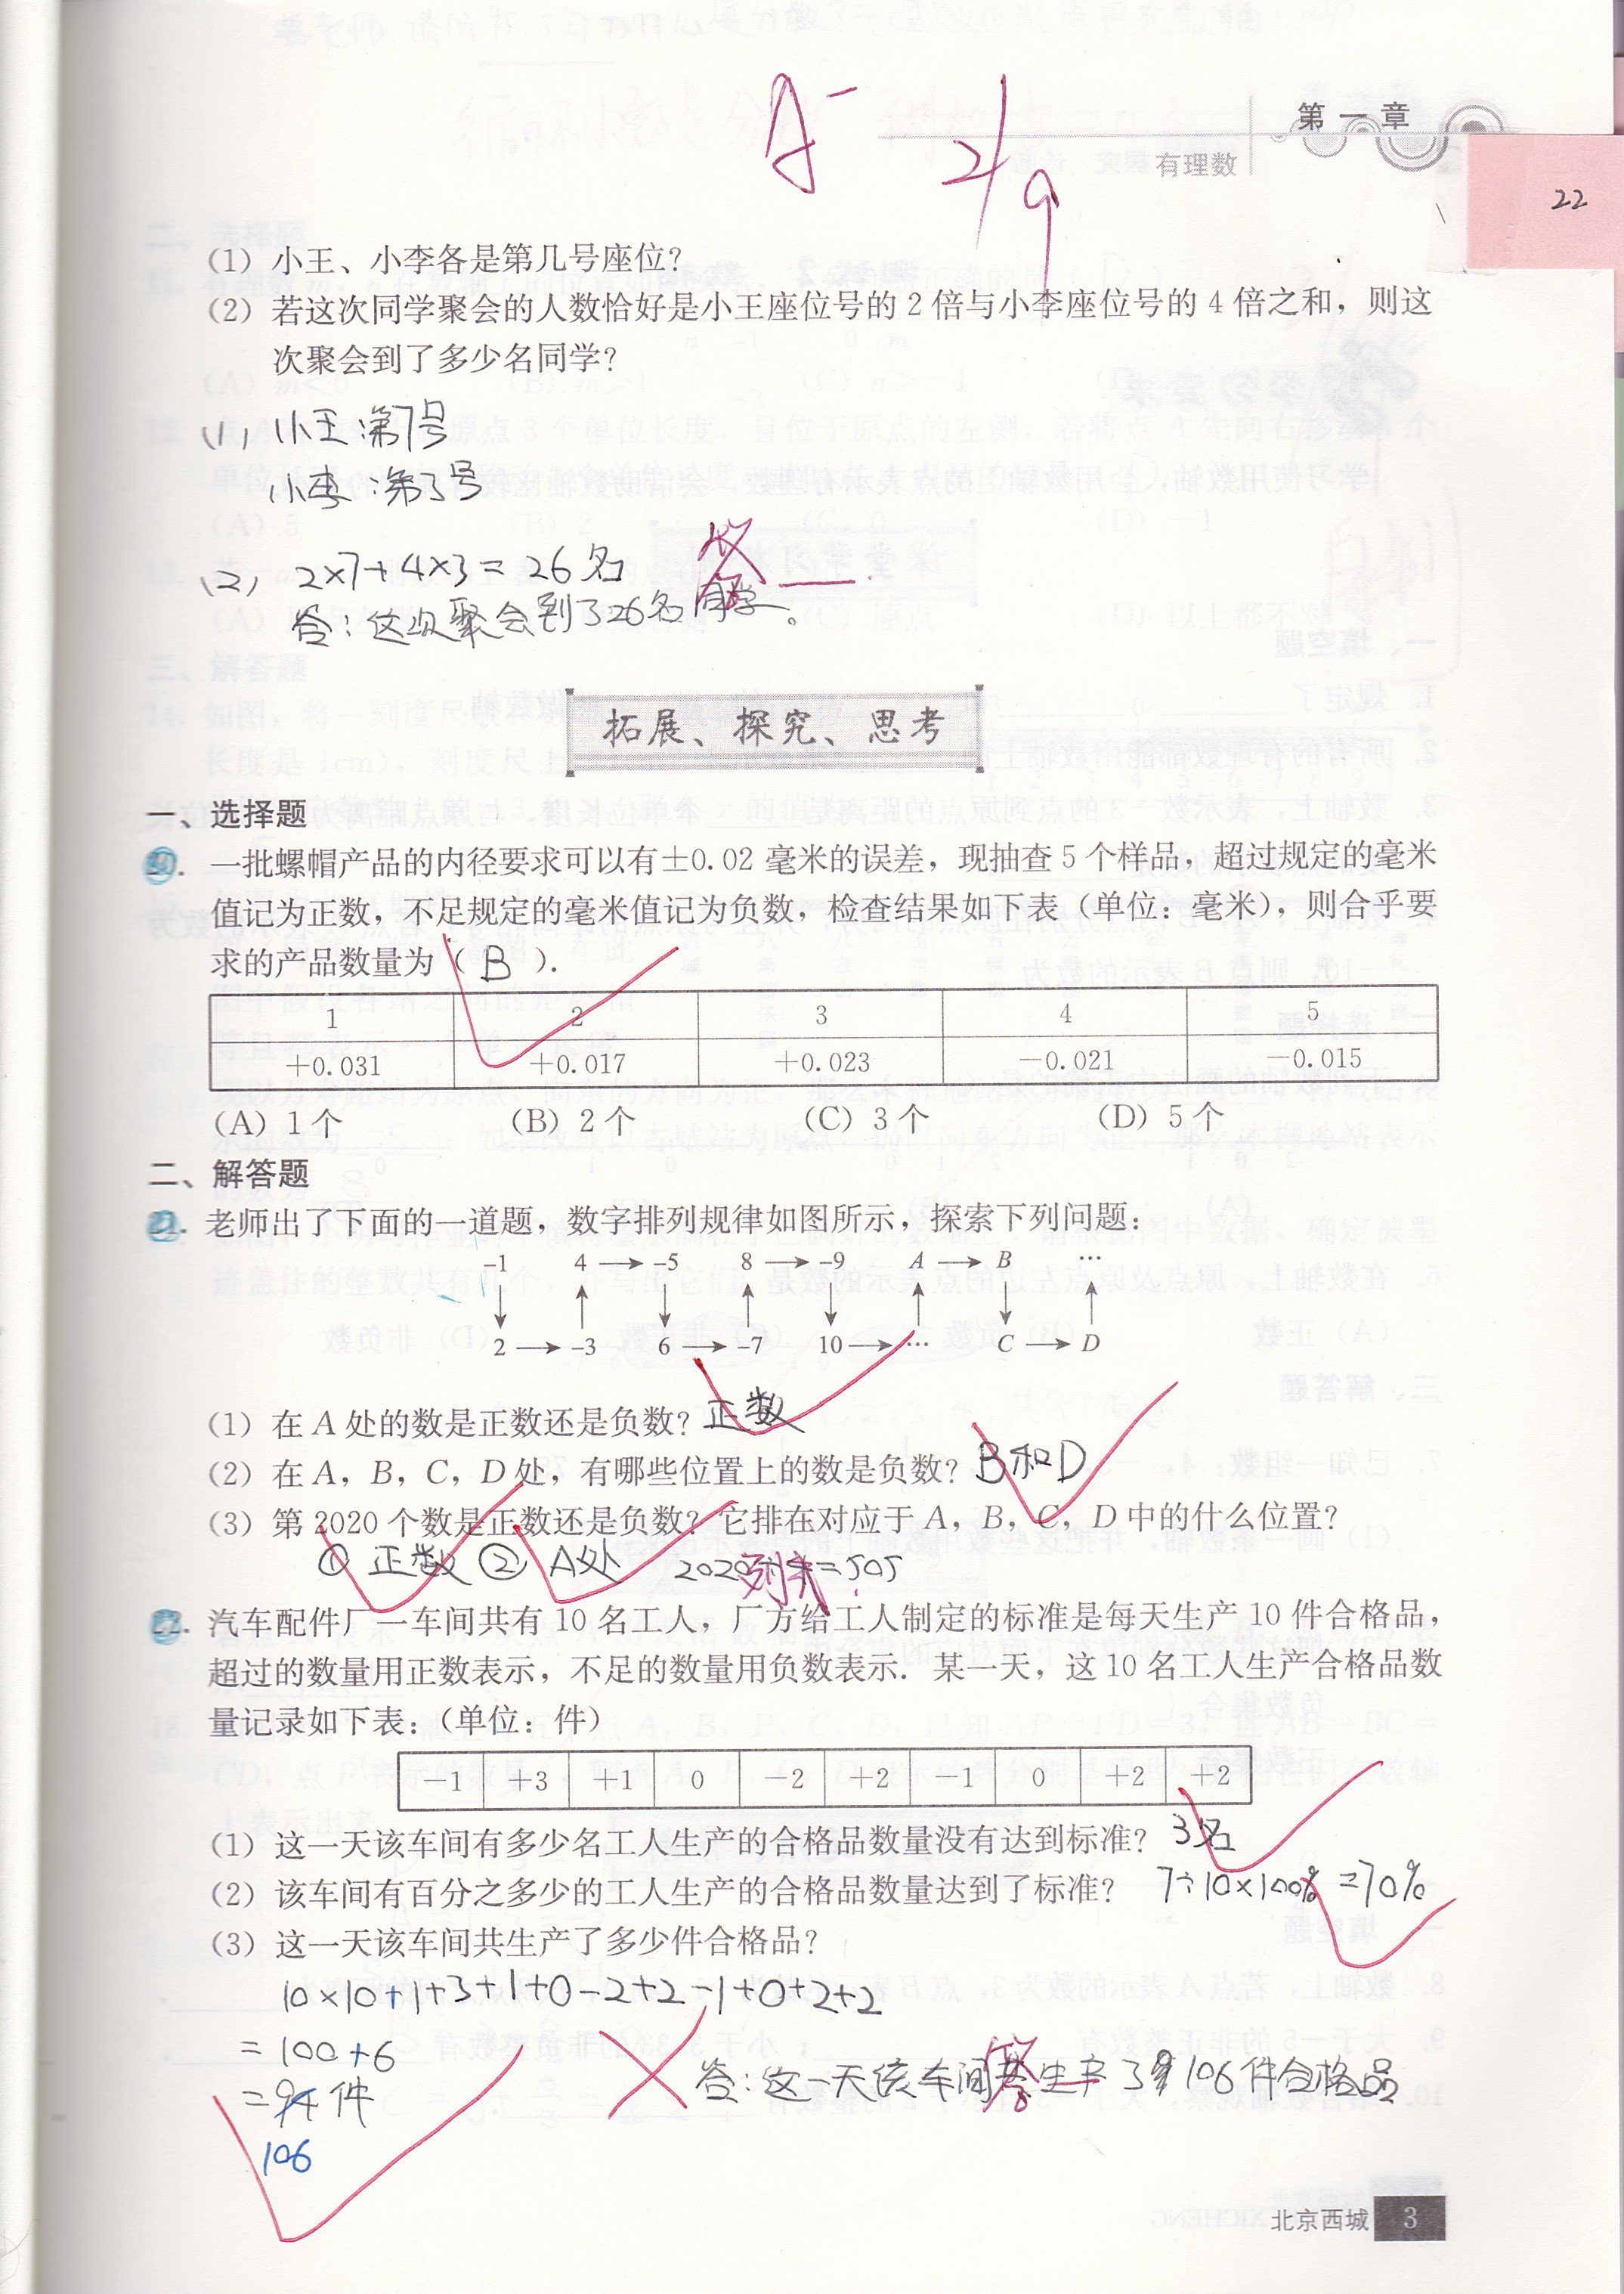 A⁻
2/9
第一章
有理数
22
(1) 小王、小李各是第几号座位?
(2) 若这次同学聚会的人数恰好是小王座位号的 2 倍与小李座位号的 4 倍之和，则这
次聚会到了多少名同学?
(1) 小王:第7号
小李:第3号
(2) 2×7+4×3=26名
答
答:这次聚会到了26名同学。
拓展、探究、思考
一、选择题
20. 一批螺帽产品的内径要求可以有±0.02 毫米的误差，现抽查 5 个样品，超过规定的毫米
值记为正数，不足规定的毫米值记为负数，检查结果如下表（单位：毫米），则合乎要
求的产品数量为（ B ）.
1 2 3 4 5
+0.031 +0.017 +0.023 −0.021 −0.015
(A) 1个 (B) 2个 (C) 3个 (D) 5个
二、解答题
21. 老师出了下面的一道题，数字排列规律如图所示，探索下列问题：
−1 4 → −5 8 → −9 A → B …
↓ ↑ ↓ ↑ ↓ ↑ ↓ ↑
2 → −3 6 → −7 10 → … C → D
(1) 在 A 处的数是正数还是负数? 正数
(2) 在 A，B，C，D 处，有哪些位置上的数是负数? B和D
(3) 第 2020 个数是正数还是负数? 它排在对应于 A，B，C，D 中的什么位置?
① 正数 ② A处 2020÷4=505
列式
22. 汽车配件厂一车间共有 10 名工人，厂方给工人制定的标准是每天生产 10 件合格品，
超过的数量用正数表示，不足的数量用负数表示. 某一天，这 10 名工人生产合格品数
量记录如下表：（单位：件）
−1 +3 +1 0 −2 +2 −1 0 +2 +2
(1) 这一天该车间有多少名工人生产的合格品数量没有达到标准? 3名
(2) 该车间有百分之多少的工人生产的合格品数量达到了标准? 7÷10×100%=70%
(3) 这一天该车间共生产了多少件合格品?
10×10+1+3+1+0−2+2−1+0+2+2
=100+6
=94件
答
答:这一天该车间共生产了106件合格品
106
北京西城 3